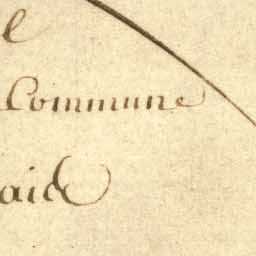 e
Commune
aid